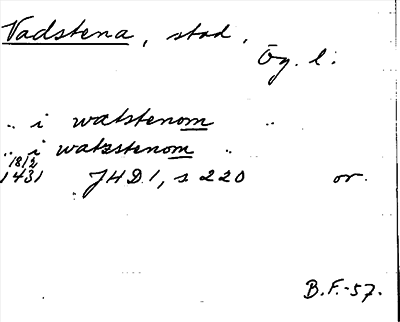 Vadstena, stad,
Ög. l:
" i watstenom "
" i watzstenom "
18/2
1431 JHD 1, s 220 or.
B.F.-57.